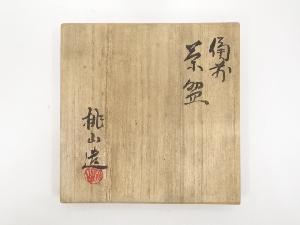 備前
茶盌
桃山造